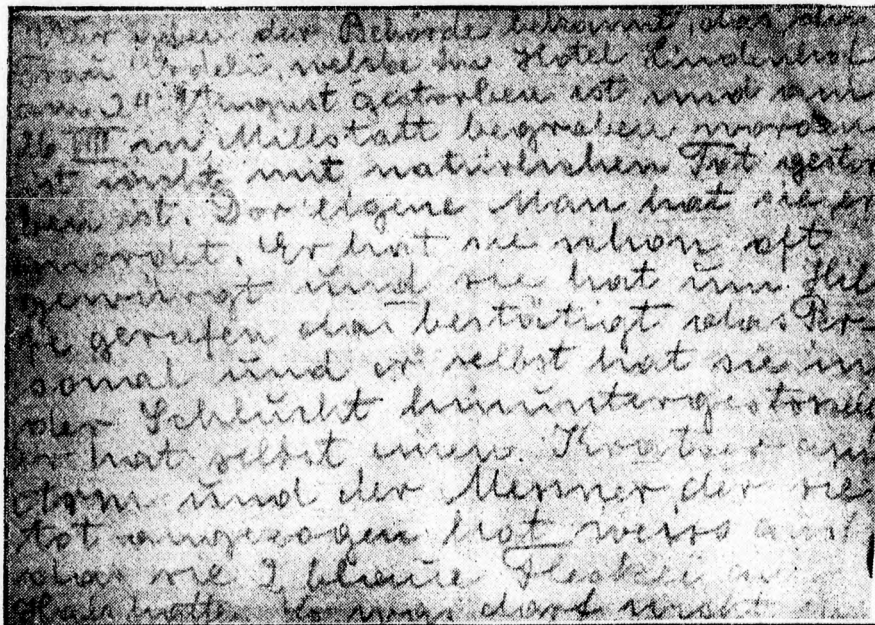 Wir geben der Behörde bekannt, das die
Frau Erdeli, welche im Hotel Lindenhof
am 2" August gestorben ist und am
26 VIII in Millstatt begraben worden
ist nicht mit natürlichen Tot gestor
ben ist. Der eigene Man hat sie er
mordet. Er hat sie schon oft
gewürgt und sie hat um Hil
fe gerufen das bestätigt das Per-
sonal und er selbst hat sie in
der Schlucht hinuntergestossen
er hat selbst einen Kratzer am
Arm und der Messner der sie
tot angezogen hat weiss auch
das sie 2 blaue Flecken am
Hals hatte. So was darf nicht